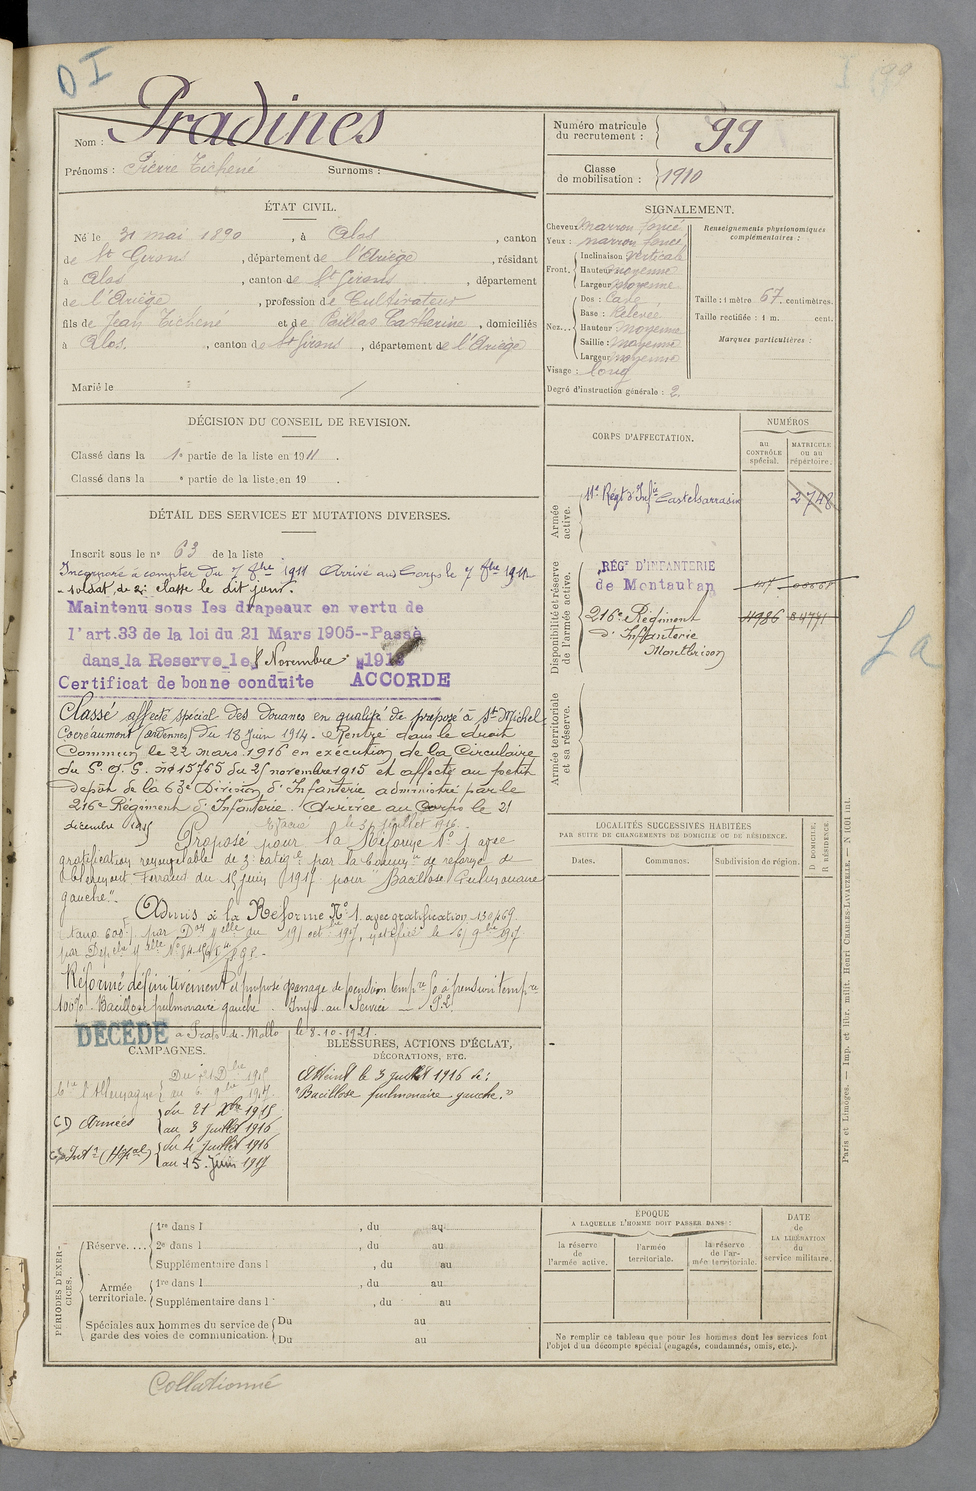 OI
99
Nom : Pradines
Prénoms : Pierre Tichené Surnoms :
Numéro matricule du recrutement : 99
Classe de mobilisation : 1910
ÉTAT CIVIL.
Né le 31 mai 1890, à Alos, canton
de St Girons, département de l'Ariège, résidant
à Alos, canton de St Girons, département
de l'Ariège, profession de Cultivateur
fils de Jean Tichené et de Paillas Catherine, domiciliés
à Alos, canton de St Girons, département de l'Ariège
Marié le
SIGNALEMENT.
Cheveux Marron foncé
Yeux : marron foncé
Front. Inclinaison Verticale
Hauteur moyenne
Largeur moyenne
Nez... Dos : Cave
Base : Relevée
Hauteur : Moyenne
Saillie : Moyenne
Largeur moyenne
Visage : long
Degré d'instruction générale : 2
Renseignements physionomiques complémentaires :
Taille : 1 mètre 67 centimètres.
Taille rectifiée : 1 m. cent.
Marques particulières :
DÉCISION DU CONSEIL DE REVISION.
Classé dans la 1e partie de la liste en 1911.
Classé dans la e partie de la liste en 19 .
DÉTAIL DES SERVICES ET MUTATIONS DIVERSES.
Inscrit sous le no 63 de la liste
Incorporé à compter du 7 8bre 1911 Arrivé au Corps le 7 8bre 1911
soldat de 2e classe le dit jour.
Maintenu sous les drapeaux en vertu de
l'art.33 de la loi du 21 Mars 1905--Passé
dans la Reserve le 8 Novembre 1913
Certificat de bonne conduite ACCORDE
Classé affecté spécial des Douanes en qualité de préposé à St Michel
(Ardennes) du 18 Juin 1914. Rentré dans le droit
Commun le 22 mars 1916 en exécution de la Circulaire
du G.Q.G. no 15765 du 25 novembre 1915 et affecté au petit
dépôt de la 63e Division d'Infanterie administré par le
216e Régiment d'Infanterie. Arrivée au Corps le 21
décembre 1915 Evacué le 3 juillet 1916.
Proposé pour la Réforme No 1 avec
gratification renouvelable de 3e catégie par la Comon de réforme de
Clermont Ferrand du 15 juin 1917 pour "Bacillose Pulmonaire
gauche".
Admis à la Réforme No 1 avec gratification
Réformé définitivement et proposé
100% Bacillose pulmonaire gauche. Imp. au Service
DÉCÉDÉ à Prats-de-Mollo le 8-10-1921.
CAMPAGNES.
Ctre l'Allemagne
CD Armées du 21 Xbre 1915
au 3 Juillet 1916
Intr (Hôpal) du 4 Juillet 1916
au 15 Juin 1917
BLESSURES, ACTIONS D'ÉCLAT,
DÉCORATIONS, ETC.
Atteint le 3 juillet 1916 de :
"Bacillose pulmonaire gauche."
CORPS D'AFFECTATION.
NUMÉROS
au CONTRÔLE spécial.
MATRICULE ou au répertoire.
Armée active.
11e Régt d'Infie Castelsarrasin 2748
Disponibilité et réserve de l'armée active.
RÉGt D'INFANTERIE
de Montauban
216e Régiment 11986
d'Infanterie
Montbrison
Armée territoriale et sa réserve.
La
LOCALITÉS SUCCESSIVES HABITÉES
PAR SUITE DE CHANGEMENTS DE DOMICILE OU DE RÉSIDENCE.
Dates. Communes. Subdivision de région.
D. DOMICILE. R. RÉSIDENCE.
PÉRIODES D'EXERCICES.
Réserve.... 1re dans l , du au
2e dans l , du au
Supplémentaire dans l , du au
Armée territoriale. 1re dans l , du au
Supplémentaire dans l , du au
Spéciales aux hommes du service de garde des voies de communication. Du au
Du au
ÉPOQUE
A LAQUELLE L'HOMME DOIT PASSER DANS :
la réserve de l'armée active.
l'armée territoriale.
la réserve de l'armée territoriale.
DATE de LA LIBÉRATION du service militaire.
Ne remplir ce tableau que pour les hommes dont les services font
l'objet d'un décompte spécial (engagés, condamnés, omis, etc.).
Paris et Limoges. — Imp. et libr. milit. Henri CHARLES-LAVAUZELLE. — N 1601 int.
Collationné